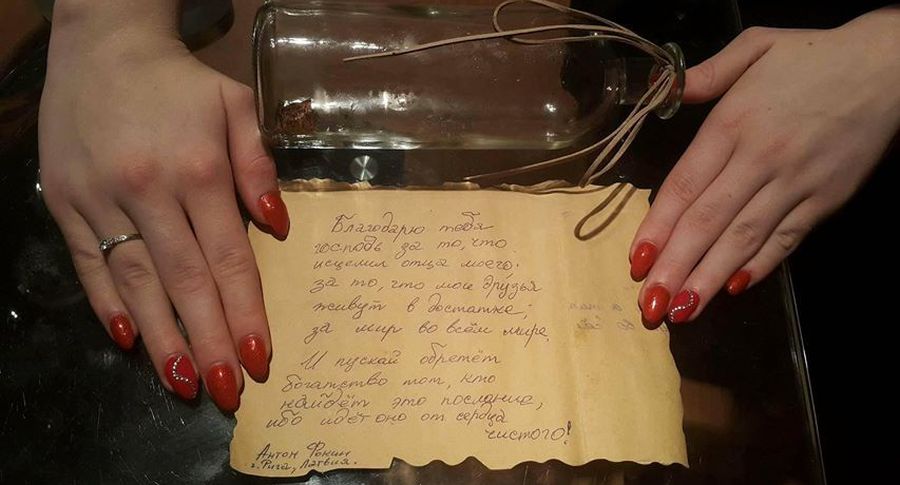 Благодарю тебя
господь за то, что
исцелил отца моего.
за то, что мои друзья
живут в достатке;
за мир во всём мире.
И пускай обретёт
богатство тот, кто
найдёт это послание,
ибо идёт оно от сердца
чистого!
Антон Фокин
г. Рига, Латвия.